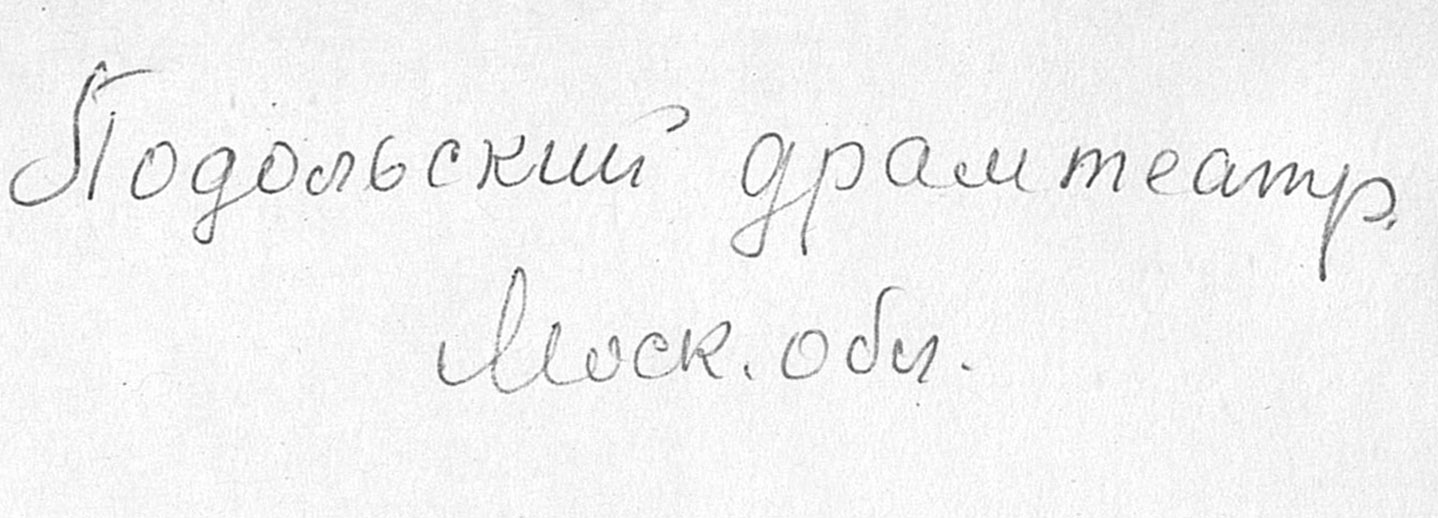 Подольский драмтеатр.
Моск. обл.